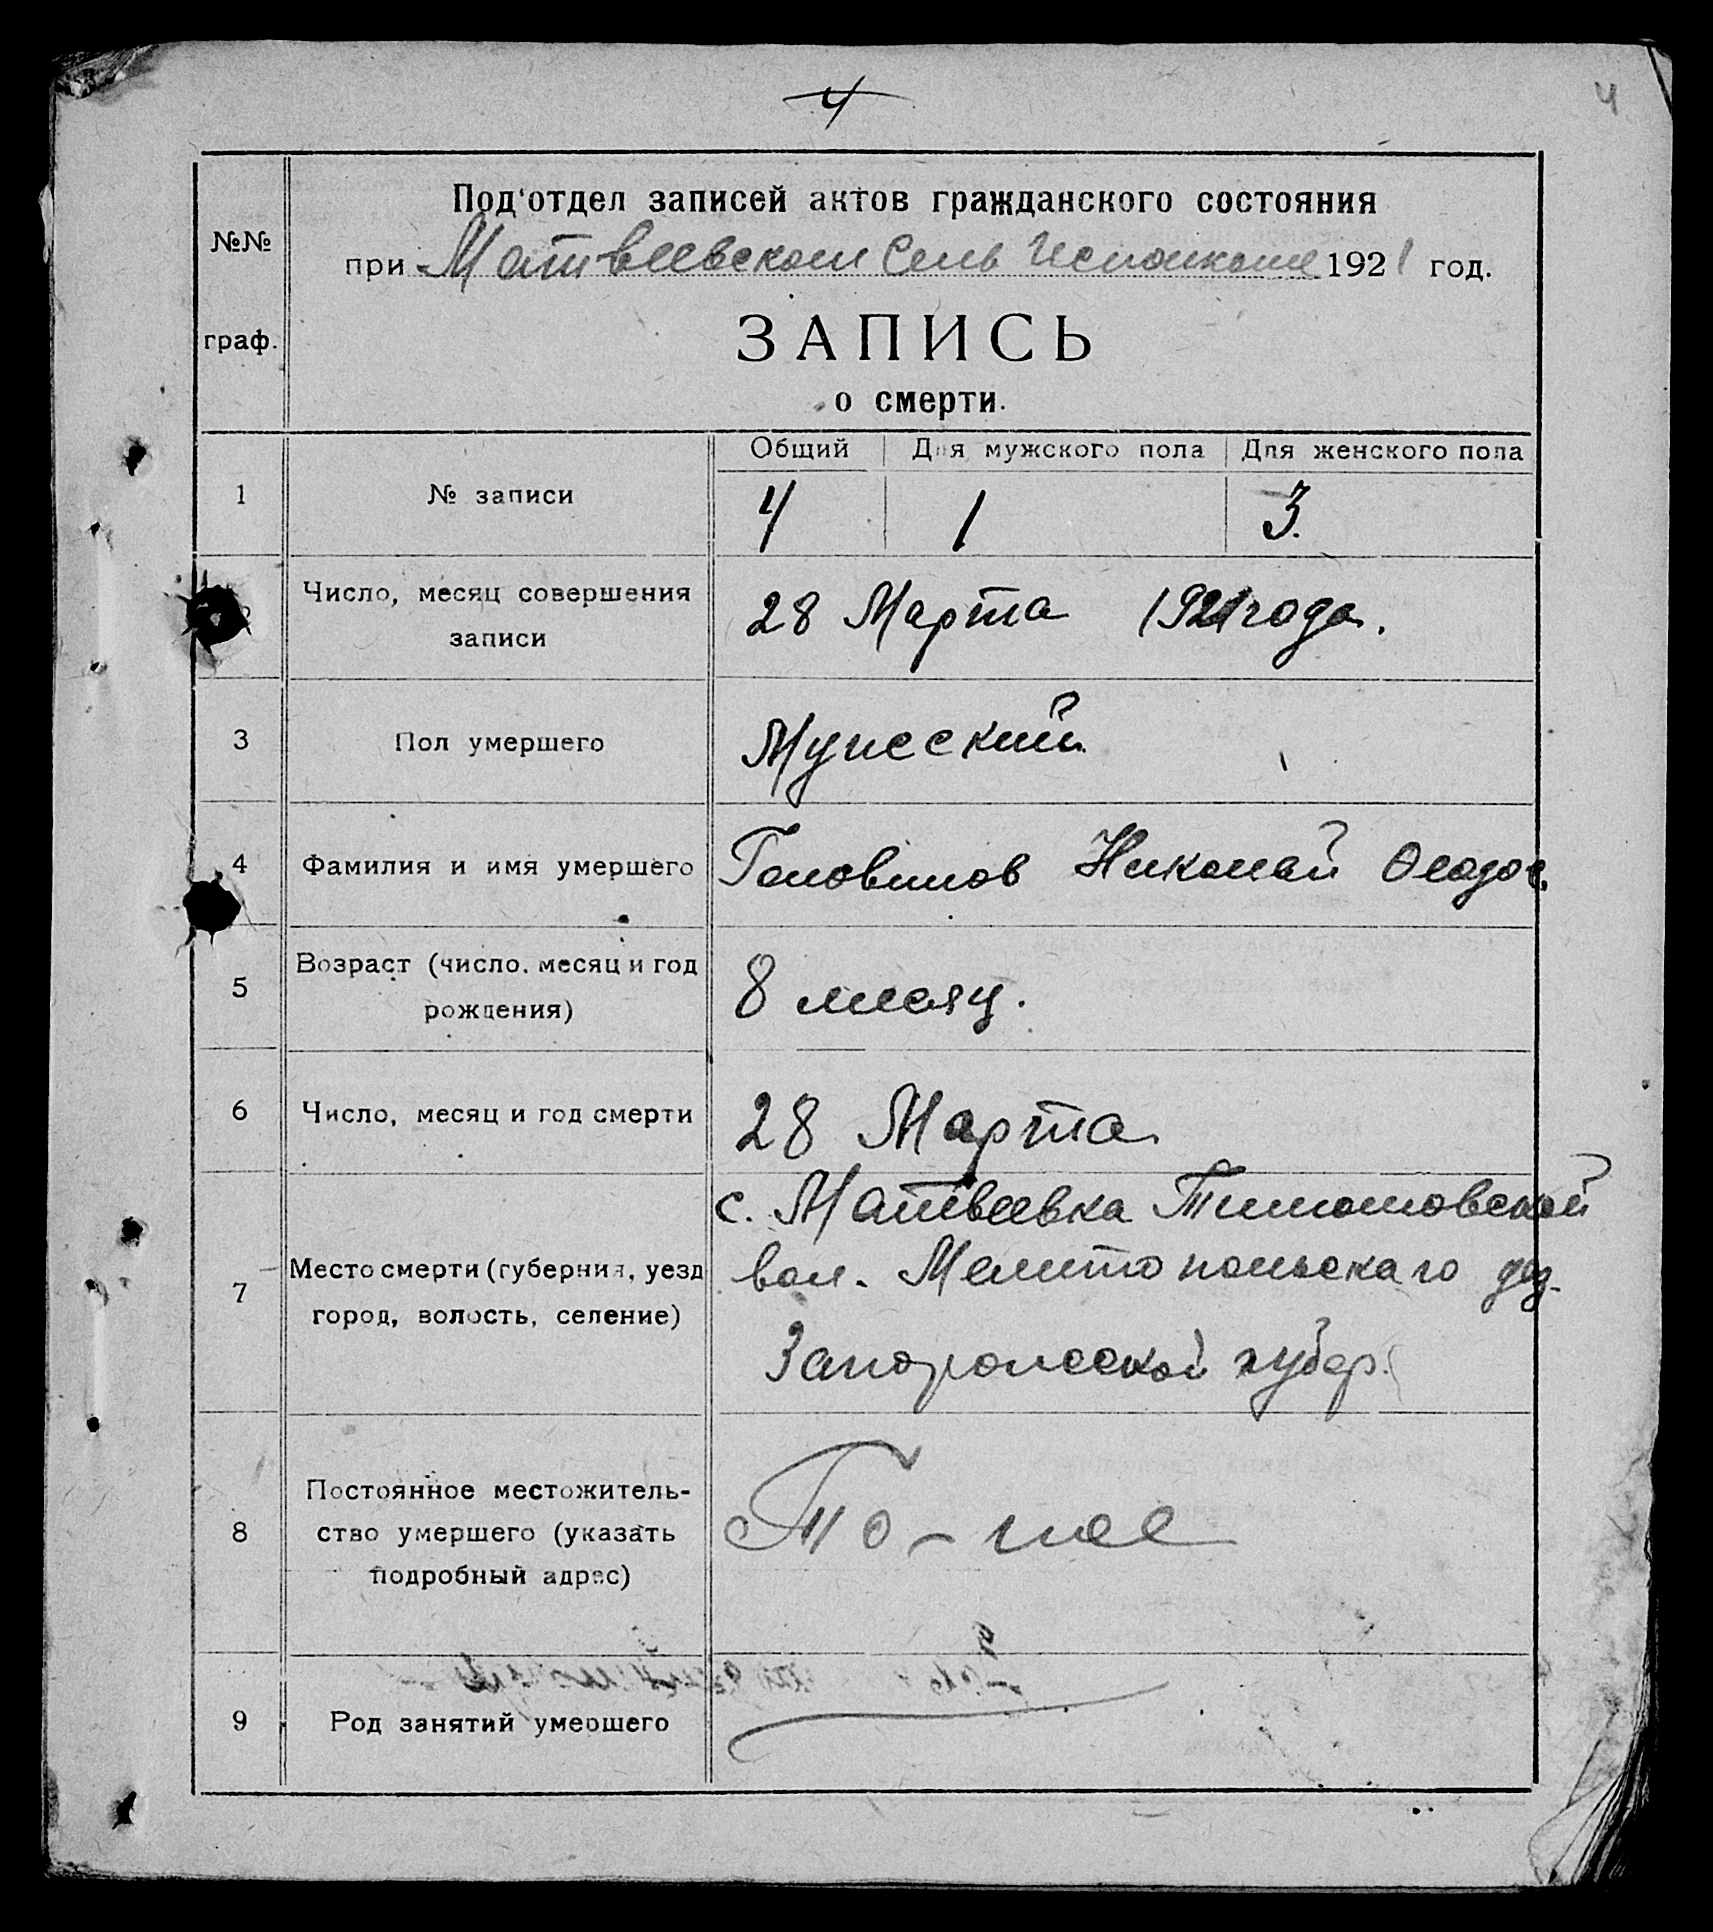 4
4
Под'отдел записей актов гражданского состояния
№№
при Матвеевском Сель Исполкоме 1921 год.
граф.
ЗАПИСЬ
о смерти.
Общий Для мужского пола Для женского пола
1 № записи 4 1 3.
Число, месяц совершения
записи
28 Марта 1921 года.
3 Пол умершего Мужский
4 Фамилия и имя умершего Головинов Николай Феодос.
Возраст (число, месяц и год
5
рождения)
8 месяц.
6 Число, месяц и год смерти 28 Марта
с. Матвеевка Тимошовской
Место смерти (губерния, уезд
вол. Мелитопольскаго уез.
7
город, волость, селение)
Запорожской губер.
Постоянное местожитель-
8 ство умершего (указать
подробный адрес)
То-же
9 Род занятий умершего